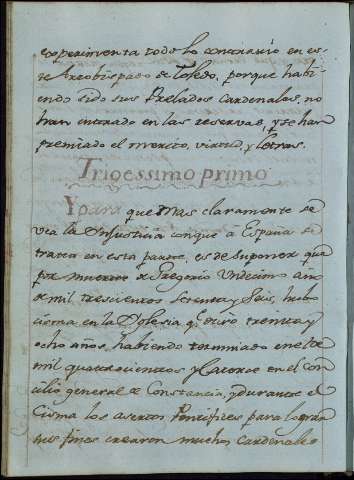 experimenta todo lo contrario en es-
te Arzobispado de Toledo, porque habi-
endo sido sus Prelados Cardenales, no
han entrado en las reservas, y se han
premiado el merito, virtud, y letras.
Trigessimo primo
Y para que mas claramente se
vea la Injusticia con que à España se
trata en esta parte, es de suponer que
por muerte de Gregorio Undecimo año
de mil trescientos setenta y seis, hubo
cisma en la Yglesia q.e duró treinta y
ocho años, habiendo terminado en el de
mil quatrocientos y catorce en el con-
cilio general de Constancia, y durante el
Cisma los asertos Pontifices para lograr
sus fines crearon muchos Cardenales